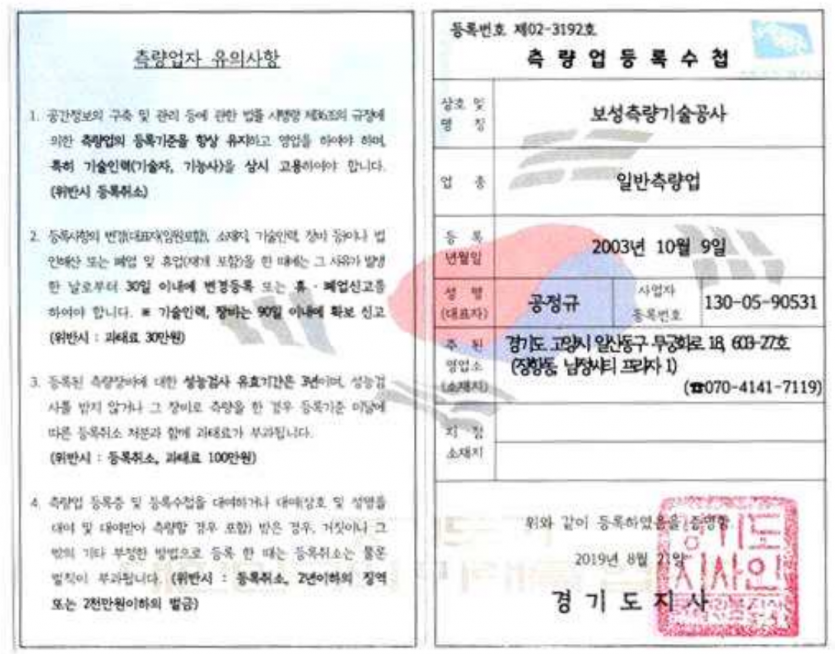 측량업자 유의사항
1. 공간정보의 구축 및 관리 등에 관한 법률 시행령 제36조의 규정에
의한 측량업의 등록기준을 항상 유지하고 영업을 하여야 하며,
특히 기술인력(기술자, 기능사)을 상시 고용하여야 합니다.
(위반시 등록취소)
2. 등록사항의 변경(대표자(임원포함), 소재지, 기술인력, 장비 등)이나 법
인해산 또는 폐업 및 휴업(재개 포함)을 한 때에는 그 사유가 발생
한 날로부터 30일 이내에 변경등록 또는 휴 · 폐업신고를
하여야 합니다. ※ 기술인력, 장비는 90일 이내에 확보 신고
(위반시 : 과태료 30만원)
3. 등록된 측량장비에 대한 성능검사 유효기간은 3년이며, 성능검
사를 받지 않거나 그 장비로 측량을 한 경우 등록기준 미달에
따른 등록취소 처분과 함께 과태료가 부과됩니다.
(위반시 : 등록취소, 과태료 100만원)
4. 측량업 등록증 및 등록수첩을 대여하거나 대여(상호 및 성명을
대여 및 대여받아 측량할 경우 포함) 받은 경우, 거짓이나 그
밖의 기타 부정한 방법으로 등록 한 때는 등록취소는 물론
벌칙이 부과됩니다. (위반시 : 등록취소, 2년이하의 징역
또는 2천만원이하의 벌금)
등록번호 제02-3192호
측 량 업 등 록 수 첩
상호 및
명 칭
보성측량기술공사
업 종
일반측량업
등 록
년월일
2003년 10월 9일
성 명
(대표자)
공정규
사업자
등록번호
130-05-90531
주 된
영업소
(소재지)
경기도 고양시 일산동구 무궁화로 18, 603-27호
(장항동, 남정씨티 프라자 1)
(☎070-4141-7119)
지 점
소재지
위와 같이 등록하였음을 증명함.
2019년 8월 21일
경 기 도 지 사
경기도
지사인